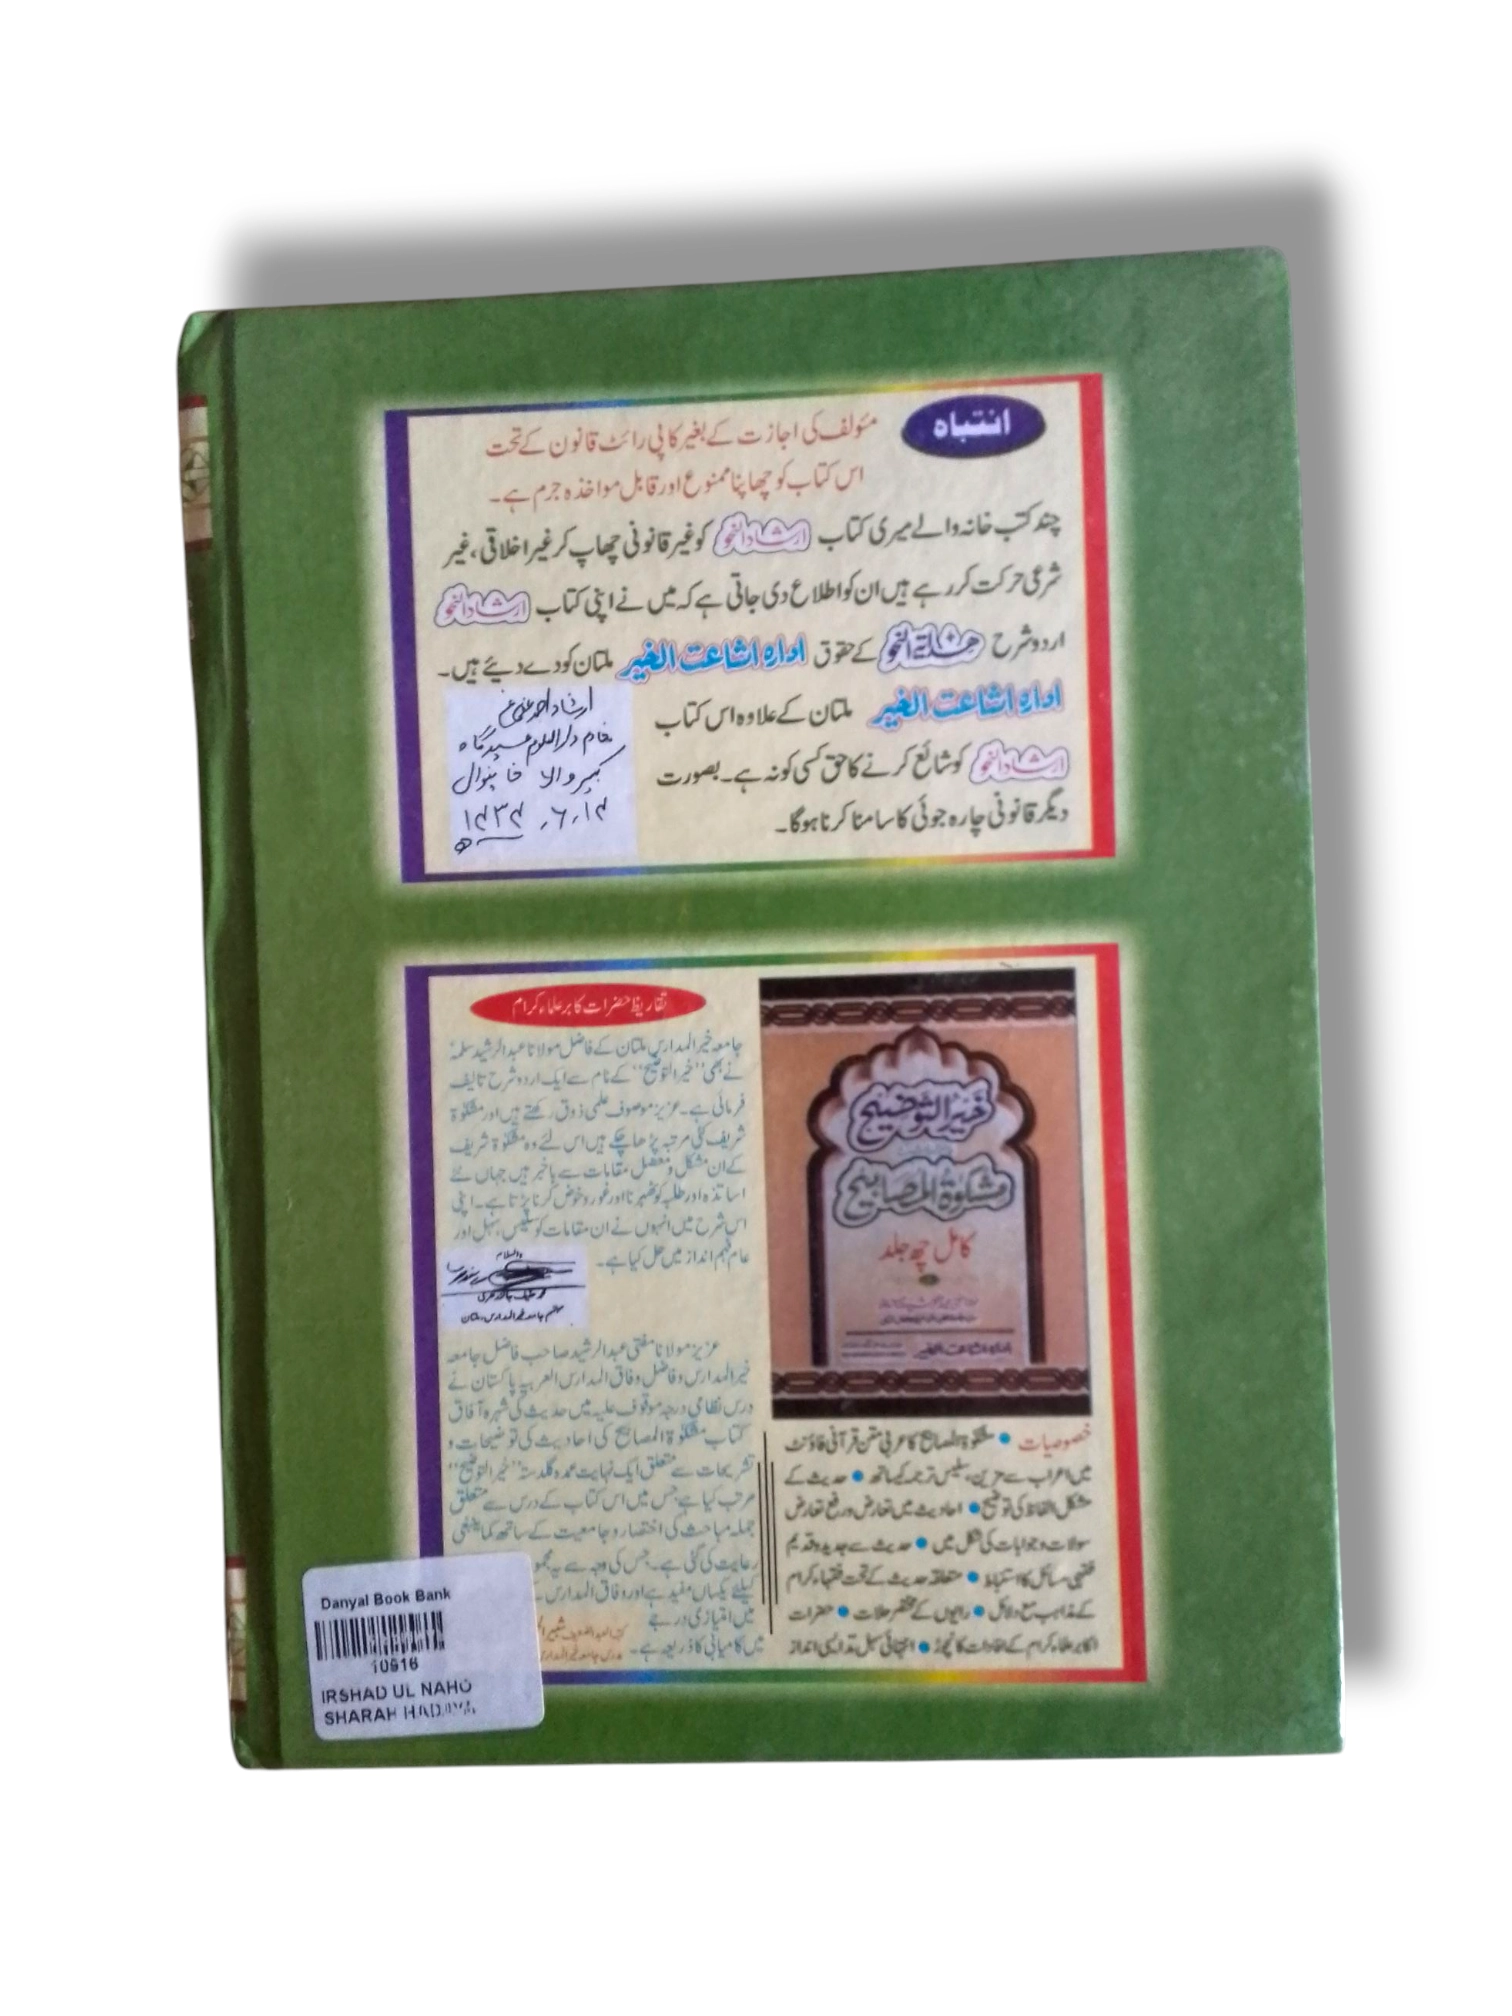 انتباہ
مئولف کی اجازت کے بغیر کاپی رائٹ قانون کے تحت
اس کتاب کو چھاپنا ممنوع اور قابل مواخذہ جرم ہے۔
چند کتب خانہ والے میری کتاب ارشاد النحو کو غیر قانونی چھاپ کر غیر اخلاقی، غیر
شرعی حرکت کر رہے ہیں ان کو اطلاع دی جاتی ہے کہ میں نے اپنی کتاب ارشاد النحو
اردو شرح ھدایة النحو کے حقوق ادارہ اشاعت الخیر ملتان کو دے دیئے ہیں۔
ادارہ اشاعت الخیر ملتان کے علاوہ اس کتاب
ارشاد النحو کو شائع کرنے کا حق کسی کو نہ ہے۔ بصورت
دیگر قانونی چارہ جوئی کا سامنا کرنا ہوگا۔
ارشاد احمد عفی عنہ
دارالعلوم عیدگاہ
کبیر والا خانیوال
۱۴۳۴ .۶.۱۴ ھ
تقاریظ حضرات کابر علماء کرام
جامعہ خیر المدارس ملتان کے فاضل مولانا عبد الرشید سلمہٗ
نے بھی "خیر التوضیح" کے نام سے ایک اردو شرح تالیف
فرمائی ہے۔ عزیز موصوف علمی ذوق رکھتے ہیں اور مشکوٰۃ
شریف کئی مرتبہ پڑھا چکے ہیں اس لئے وہ مشکوٰۃ شریف
کے ان مشکل و معضل مقامات سے باخبر ہیں جہاں نئے
اساتذہ اور طلبہ کو ٹھہرنا اور غور و خوض کرنا پڑتا ہے۔ اپنی
اس شرح میں انہوں نے ان مقامات کو سلیس، سہل اور
عام فہم انداز میں حل کیا ہے۔
والسلام
محمد حنیف جالندھری
مہتمم جامعہ خیر المدارس، ملتان
عزیز مولانا مفتی عبد الرشید صاحب فاضل جامعہ
خیر المدارس و فاضل وفاق المدارس العربیہ پاکستان نے
درس نظامی درجہ موقوف علیہ میں حدیث کی شہرہ آفاق
کتاب مشکوٰۃ المصابیح کی احادیث کی توضیحات و
تشریحات سے متعلق ایک نہایت عمدہ گلدستہ "خیر التوضیح"
مرتب کیا ہے جس میں اس کتاب کے درس سے متعلق
جملہ مباحث کی اختصار و جامعیت کے ساتھ کما ینبغی
رعایت کی گئی ہے۔ جس کی وجہ سے یہ
کیلئے یکساں مفید ہے اور وفاق المدارس
میں امتیازی درجے
میں کامیابی کا ذریعہ ہے۔
خیر التوضیح
مشکوٰۃ المصابیح
کامل چھ جلد
ادارہ اشاعت الخیر
خصوصیات • مشکوٰۃ المصابیح کا عربی متن قرآنی فاؤنٹ
میں اعراب سے مزین، سلیس ترجمہ کیساتھ • حدیث کے
مشکل الفاظ کی توضیح • احادیث میں تعارض و رفع تعارض
سوالات و جوابات کی شکل میں • حدیث سے جدید و قدیم
فقہی مسائل کا استنباط • متعلقہ حدیث کے تحت فقہاء کرام
کے مذاہب مع دلائل • راویوں کے مختصر حالات • حضرات
اکابر علماء کرام کے افادات کا نچوڑ • انتہائی سہل تدریسی انداز
Danyal Book Bank
10916
IRSHAD UL NAHO
SHARAH HADAYA